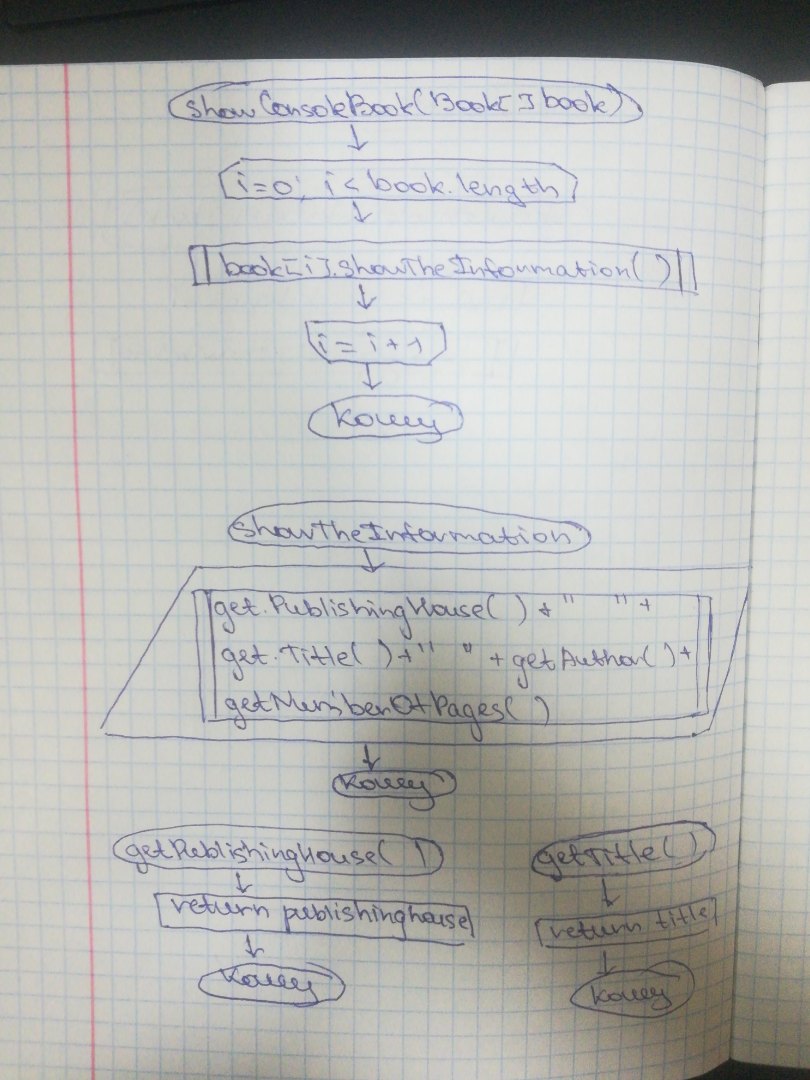 showConsoleBook(Book[] book)
i=0; i<book.length
book[i].showTheInformation()
i = i + 1
конец
showTheInformation
get.PublishingHouse() + " " +
get.Title() + " " + getAuthor() +
getNumberOfPages()
конец
getPublishingHouse()
return publishinghouse
конец
getTitle()
return title
конец